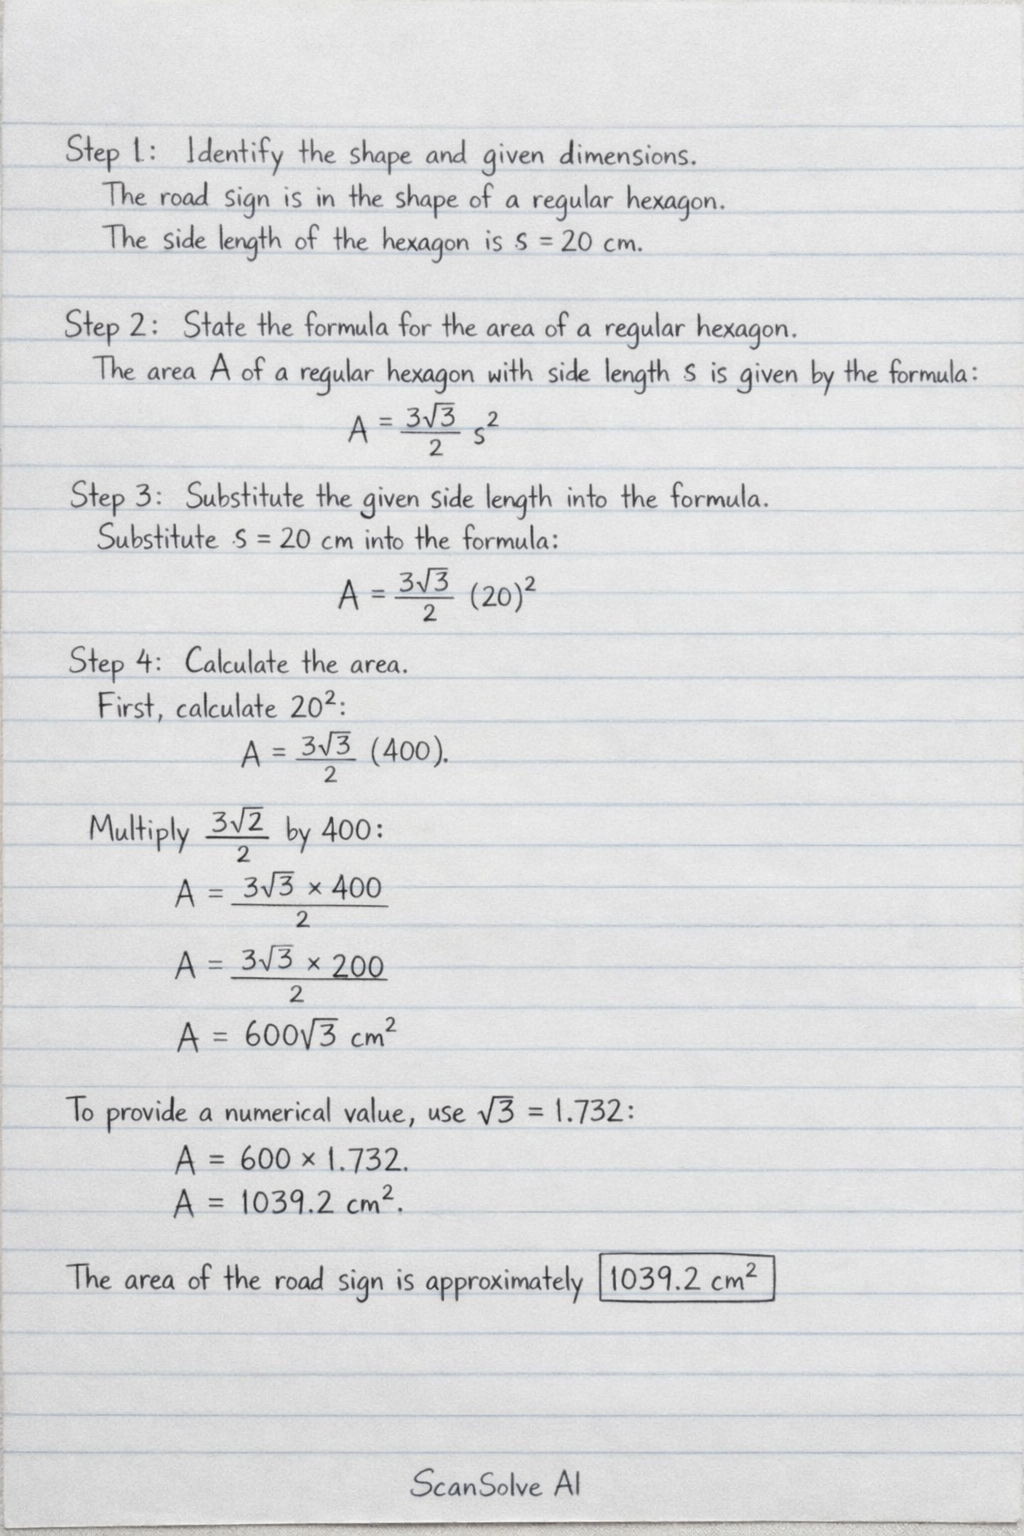 Step 1: Identify the shape and given dimensions.
The road sign is in the shape of a regular hexagon.
The side length of the hexagon is s = 20 cm.
Step 2: State the formula for the area of a regular hexagon.
The area A of a regular hexagon with side length s is given by the formula:
A = 3√3/2 s²
Step 3: Substitute the given side length into the formula.
Substitute s = 20 cm into the formula:
A = 3√3/2 (20)²
Step 4: Calculate the area.
First, calculate 20²:
A = 3√3/2 (400).
Multiply 3√2/2 by 400:
A = 3√3 × 400/2
A = 3√3 × 200/2
A = 600√3 cm²
To provide a numerical value, use √3 = 1.732:
A = 600 × 1.732.
A = 1039.2 cm².
The area of the road sign is approximately 1039.2 cm²
ScanSolve AI